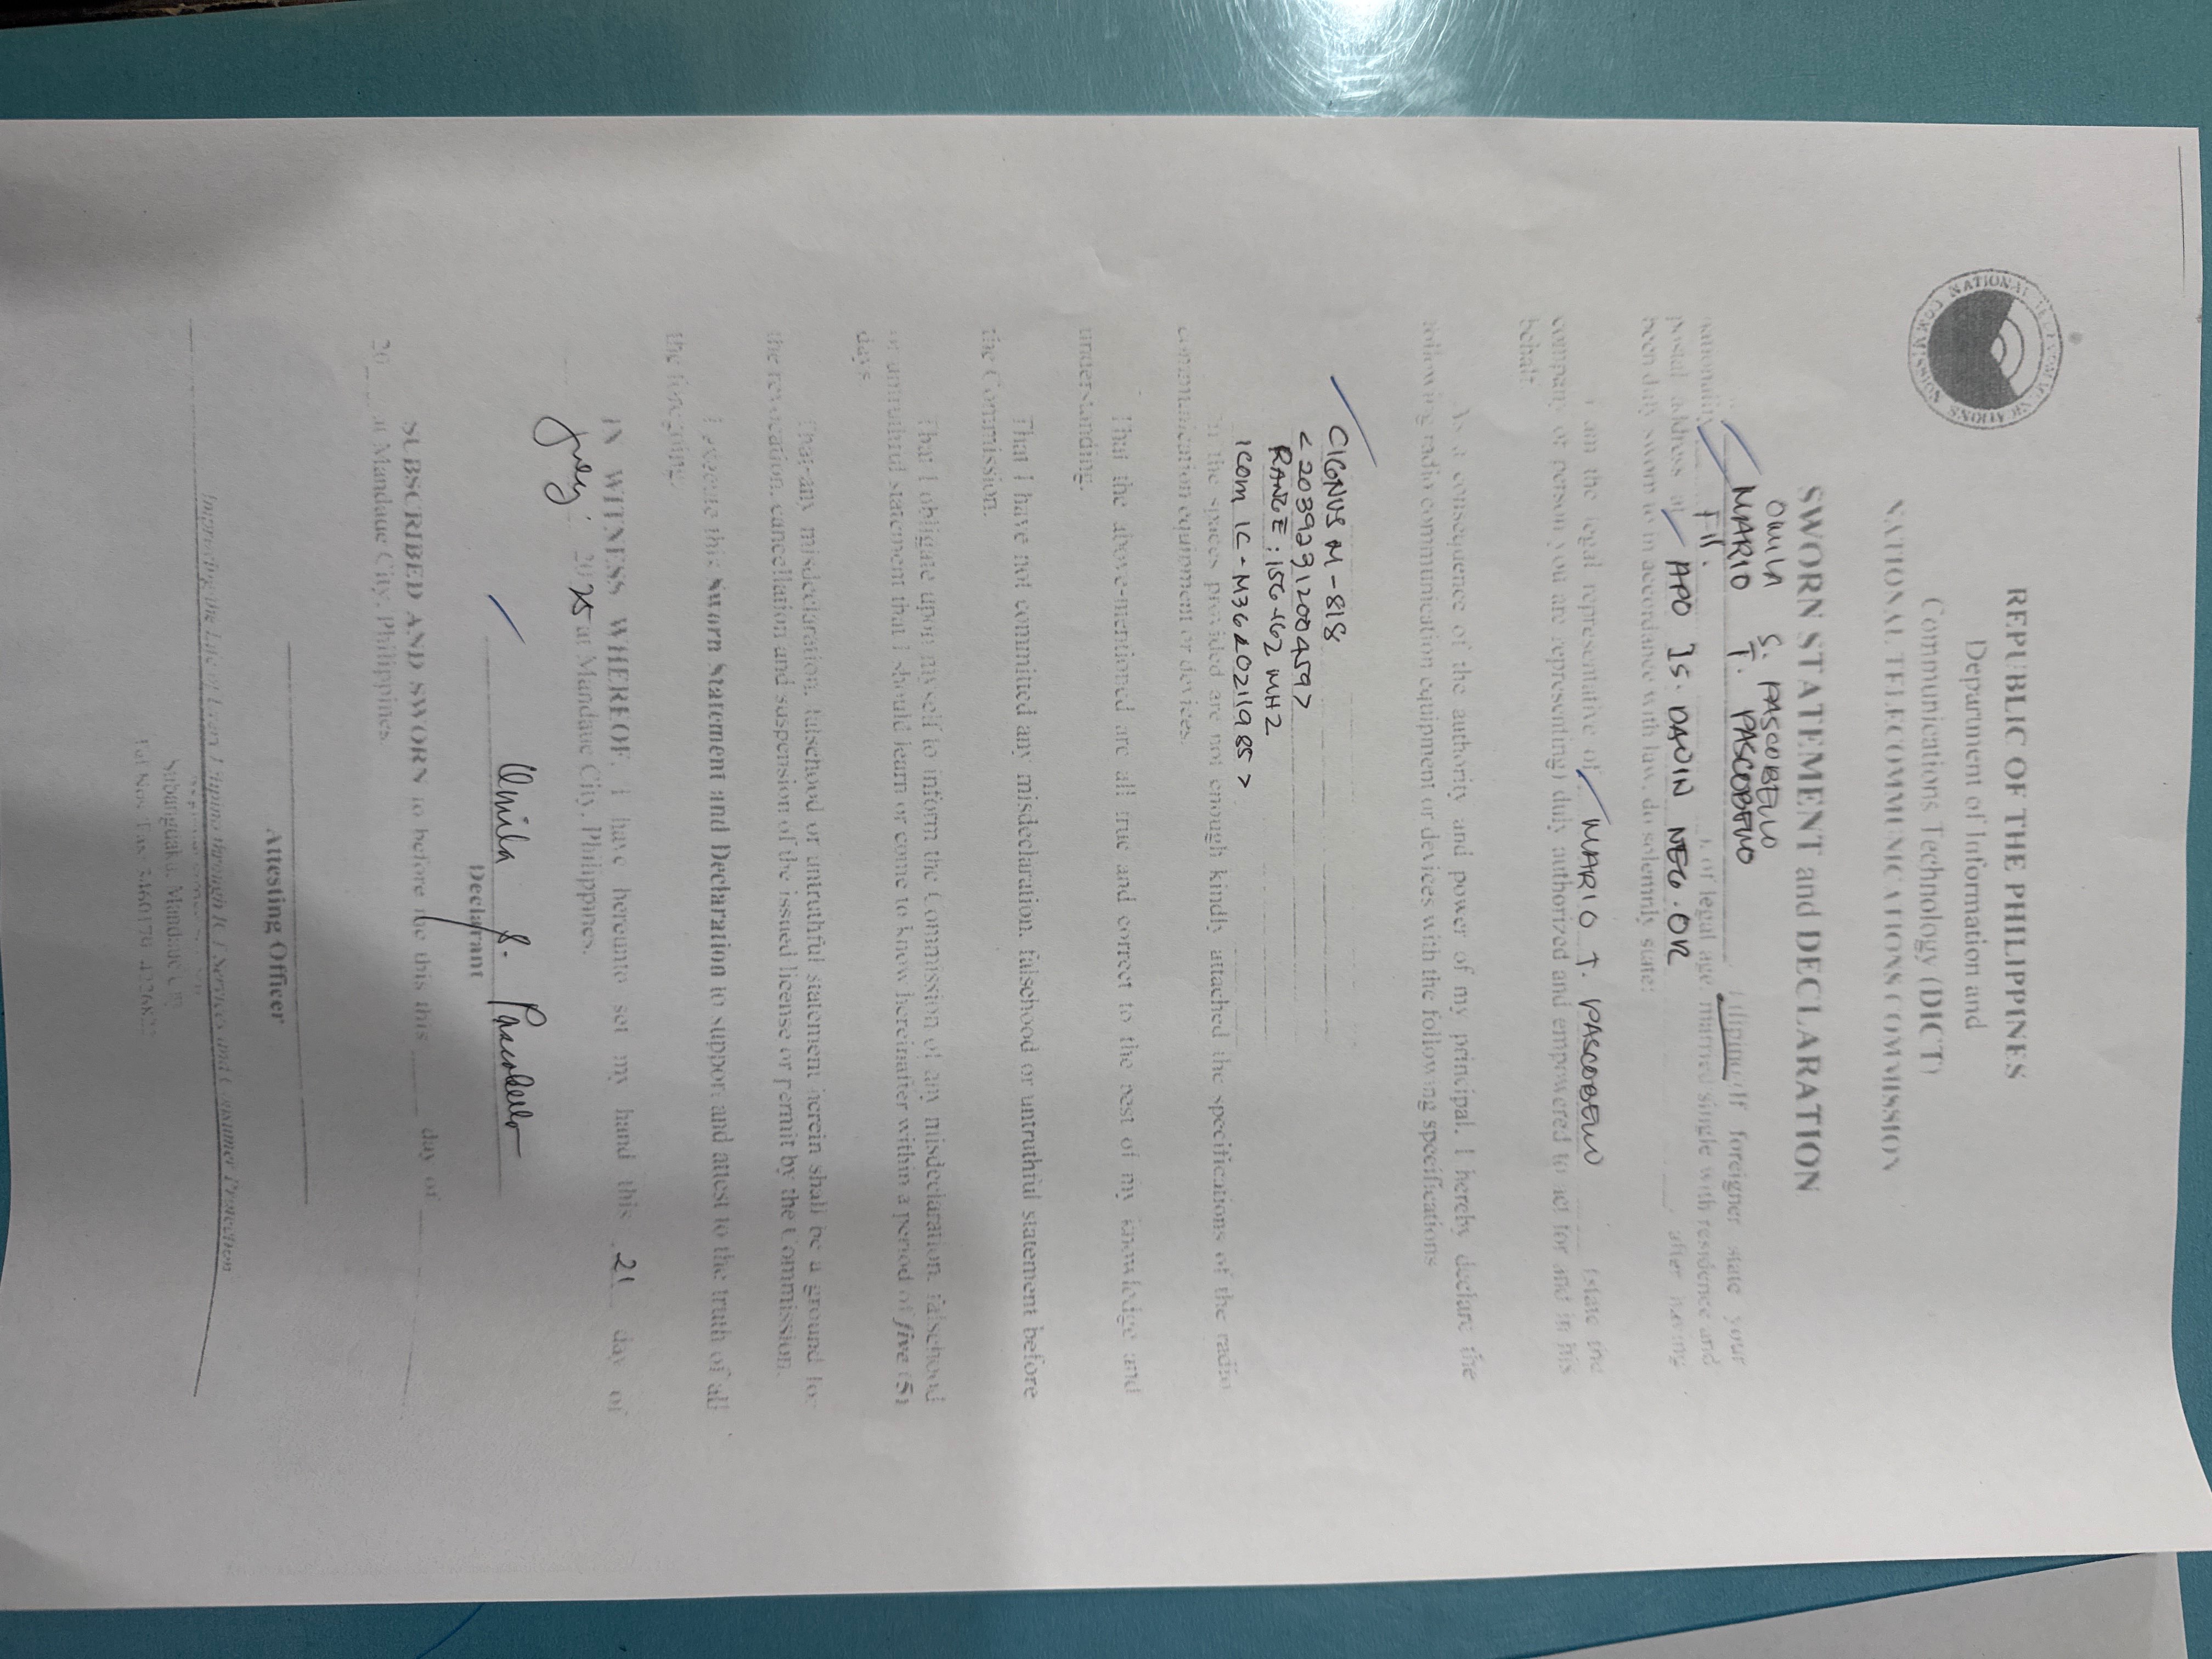 REPUBLIC OF THE PHILIPPINES
Department of Information and
Communications Technology (DICT)
NATIONAL TELECOMMUNICATIONS COMMISSION
SWORN STATEMENT and DECLARATION
S. PASCOBELLO
MARIO T. PASCOBELLO Filipino (If foreigner state your
nationality Fil. ), of legal age married single with residence and
postal address at APO IS. DAUIN NEG. OR , after having
been duly sworn to in accordance with law, do solemnly state:
I am the legal representative of MARIO T. PASCOBELLO (state the
company or person you are representing) duly authorized and empowered to act for and in his
behalf
As a consequence of the authority and power of my principal, I hereby declare the
following radio communication equipment or devices with the following specifications
CIGNUS M-818
<2203923120045977
RANGE: 156-162 MHZ
ICOM IC-M36
In the spaces provided are not enough kindly attached the specifications of the radio
communication equipment or devices.
That the above-mentioned are all true and correct to the best of my knowledge and
understanding.
That I have not committed any misdeclaration, falsehood or untruthful statement before
the Commission.
That I obligate upon myself to inform the Commission of any misdeclaration, falsehood
or untruthful statement that I should learn or come to know hereinafter within a period of five (5)
days
That any misdeclaration, falsehood or untruthful statement herein shall be a ground for
the revocation, cancellation and suspension of the issued license or permit by the Commission.
I execute this Sworn Statement and Declaration to support and attest to the truth of all
the foregoing.
IN WITNESS WHEREOF, I have hereunto set my hand this 21 day of
July 2025 at Mandaue City, Philippines.
Pascobello
Declarant
SUBSCRIBED AND SWORN to before me this this ____ day of ____
20___ at Mandaue City, Philippines.
Attesting Officer
Improving the Life of Every Filipino through ICT Services and Consumer Protection
Subangdaku, Mandaue City